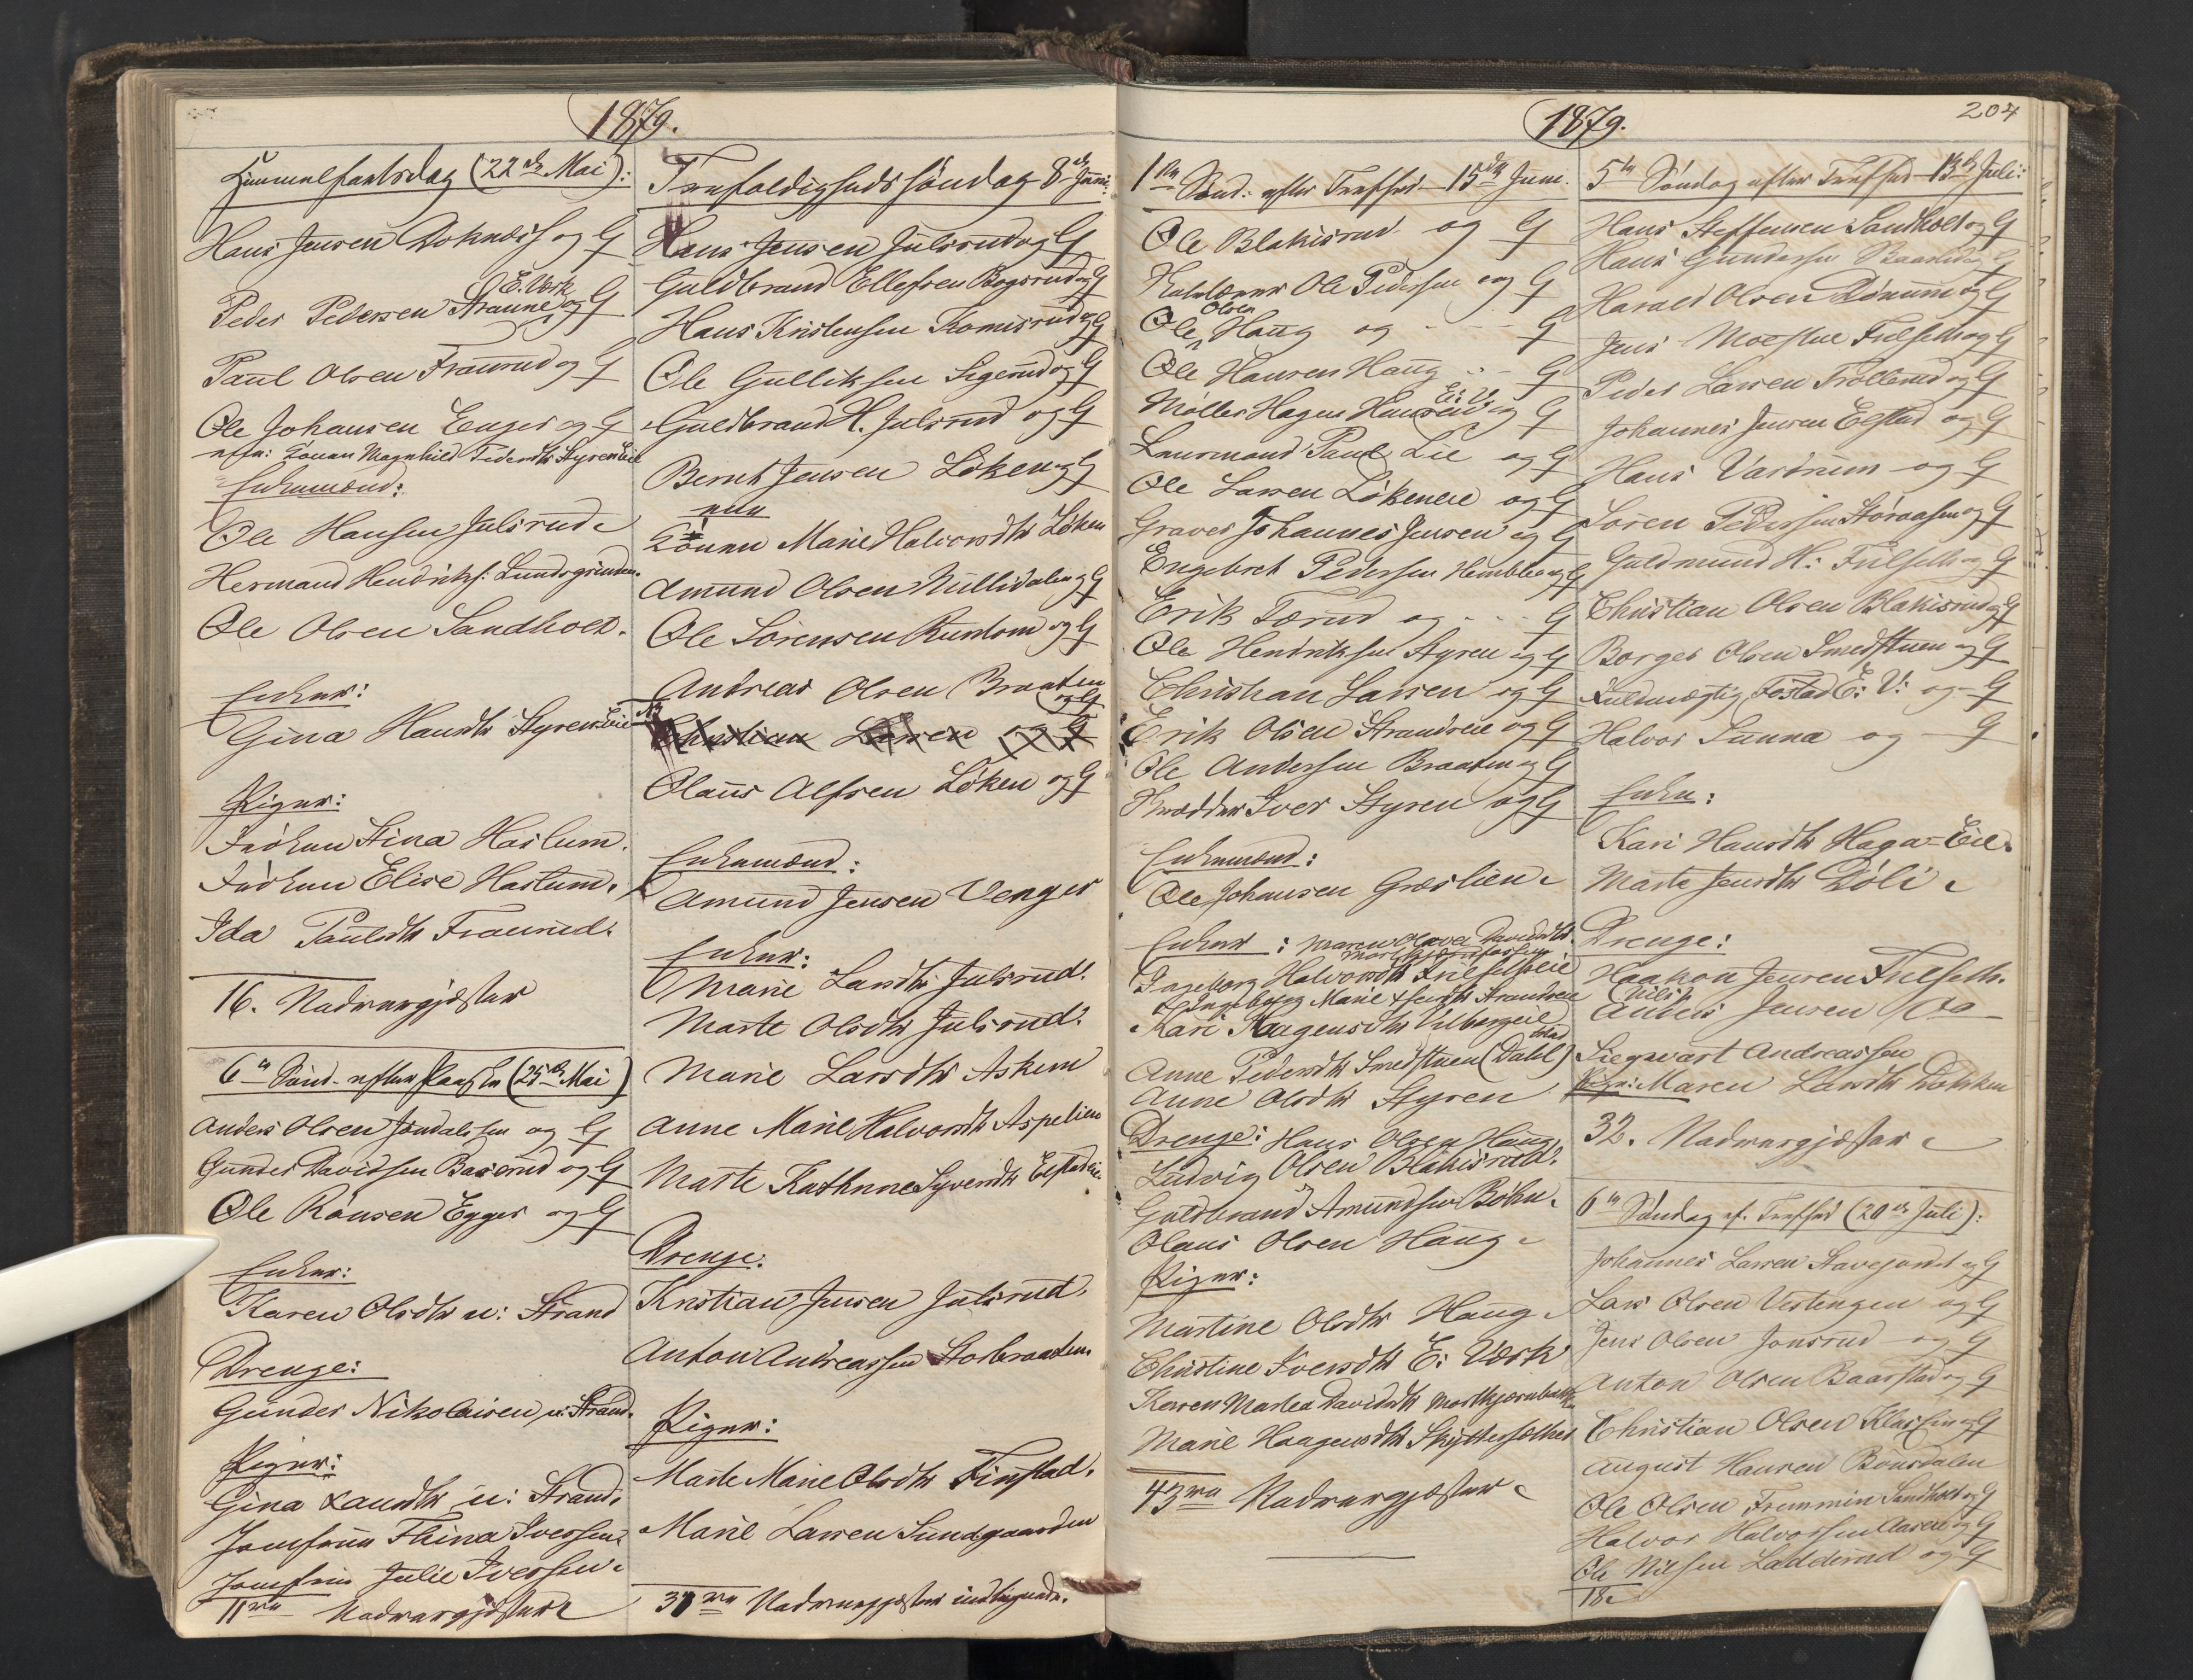 1879.
Himmelfartsdag (22de Mai):
Hans Jensen Doknæss og G
E. Værk
Peder Pedersen Braune og G
Paul Olsen Fraurud og G
Ole Johansen Enger og G
Konen Magnhild Pedersdtr Styreneie
Enkemænd:
Ole Hansen Julsrud
Hermand Hendriks: Lundsgrinden.
Ole Olsen Sandholt.
Enker:
Gina Hansdtr Styreneie
Piger:
Frøken Stina Haslum.
Frøken Elise Haslum.
Ida Paulsdtr Fraurud.
16. Nadvergjæster
6te Sønd. efter Paaske (25de Mai)
Anders Olsen Jøndalssen og G
Gunder Davidsen Baserud og G
Ole Rønsen Egger og G
Enker:
Karen Olsdtr u: Strand
Drenge:
Gunder Nikolaisen u: Strand.
Piger:
Gina Larsdtr u: Strand.
Jomfru Thina Iversen.
Jomfru Julie Iversen.
11ve Nadvergjæster
Trefoldighedssöndag 8de Juni.
Hans Jensen Julsrud og G
Guldbrand Ellefsen Bogsrud og G
Hans Kristensen Komisrud og G
Ole Gulliksen Sigerud og G
Guldbrand H. Julsrud og G
Bernt Jensen Løken og G
Konen Marie Halvorsdtr Løken
Amund Olsen Nullidalen og G
Ole Sørensen Rustom og G
Andreas Olsen Braaten
og G
Christian Larsen og G
Olaus Alfsen Løken og G
Enkemænd:
Amund Jensen Venger
Enker:
Marie Larsdtr Julsrud.
Marte Olsdtr Julsrud.
Marie Larsdtr Askem
Anne Marie Halvorsdtr Aspelien
Marte Kathrine Syversdtr Elstadeie
Drenge.
Kristian Jensen Julsrud.
Anton Andreassen Storbraaten.
Piger:
Marte Marie Olsdtr Finstad.
Marie Larsen Sundgaarden
Nadvergjæster indtegnede.
1879.
204
1ste Sönd: efter Trefhed 15de Juni.
Ole Blakisrud og G
Ole Pedersen og G
Olsen
Ole Haug og G
Ole Hansen Haug G
Møller Hagen og G
Lensmand Paul Lie og G
Ole Larsen Løkeneie og G
Graver Johannes Jensen og G
Engebret Pedersen Hemble og G
Erik Tærud og G
Ole Hendriksen Styren og G
Christian Larsen og G
Erik Olsen Strandeie og G
Ole Andersen Braaten og G
Skrædder Iver Styren og G
Enkemænd:
Ole Johansen Græslien
Enker: Maren Olava Davidsdtr.
Ingeborg Halvorsdtr Frilseteie
Ingeborg Marie Strandeie
Kari Haagensdtr Vilbergeie
Anne Pedersdtr Smedstuen (Dahl)
Anne Olsdtr Styren
Drenge: Hans Olsen Haug.
Ludvig Olsen Blakisrud.
Guldbrand Amundsen Bøhn.
Olaus Olsen Haug
Piger:
Martine Olsdtr Haug.
Christine Iversdtr E: Værk
Karen Martea Davidsdtr Mortkjærnbak
Marie Haagensdtr Skyttersæther
43ve Nadvergjæster
5te Söndag efter Trefhed 13de Juli:
Hans Steffensen Sandholt og G
Hans Gundersen Baserud og G
Harald Olsen Dönnum og G
Jens Moestue Frilseth og G
Peder Larsen Trøllerud og G
Johannes Jensen Elstad og G
Hans Vardrum og G
Søren Pedersen Storaasen og G
Guldmund H: Frilseth og G
Christian Olsen Blakisrud og G
Borger Olsen Smedstuen og G
Fuldmægtig Fostad E: V: og G
Halvor Sunna og G
Enker:
Kari Hansdtr Haga-Eie.
Marte Jensdtr Döli
Drenge:
Haakon Jensen Frilseth.
Nils
Anders Jensen do
Siegwart Andreassen
Pige: Maren Larsdtr Dokken
32. Nadvergjæster
6te Söndag ef. Trefhed (20de Juli):
Johannes Larsen Stavejordet og G
Lars Olsen Vestengen og G
Jens Olsen Jonsrud og G
Anton Olsen Baarstad og G
Christian Olsen Klassen og G
August Hansen Bonsdalen
Ole Olsen Fremmin Sandholt og G
Halvor Halvorsen Aaseie og G
Ole Nilsen Ladderud og G
18